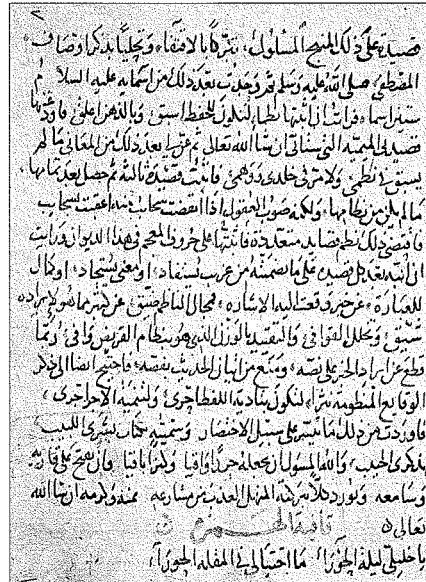 قصيدة على ذلك المنهج المسلوك، تبركا بالاقتفاء وتحليا بذكر اوصاف
المصطفى صلى الله عليه وسلم ثم وجدت بعد ذلك من اسمايه عليه السلام
ستين اسما، ورايت ان انظمها ليكون للحفظ اسبق وبالذهن اعلق فاودعتها
قصيدتى الميميه التى ستاتى ان شا الله تعالى ثم عن لى بعد ذلك من المعانى ما لم
يسبق لى نظمى ولا مر فى خلدى ووهمى، فاثبت قصيدة ثالثة ثم حصل بعد تمامها
ما لم يكن من نظامها، ولكنه صوب العقول اذا انقضت سحايب منه اعقبت بسحايب
فاقتضى ذلك نظم قصايد متعددة فاثبتها على حروف المعجم فى هذا الديوان ورايت
ان انبه بعد كل قصيدة على ما تضمنته من غريب يستفاد، او معنى يستجاد، او كمال
للعبارة، عن خبر وقعت اليه الاشارة، فمجال الناظم ضيق عن كثير مما هو لايراده
القوافى والتقييد بالوزن الذى هو نظام القريض وافى، ربما
قطع عن ايراد الخبر على نصه، ومنع من اتيان الحديث بفصه، فاحتيج الى ذكر
الوقايع المنظومة نثرا، لتكون بتادية اللفظ احرى، ولتنمية الاجر اجرى،
فاوردت من ذلك ما تيسر على سبيل الاختصار وسميته كتاب بشرى اللبيب
بذكرى الحبيب، والله المسول ان يجعله حرزا واقيا وكنزا باقيا وان يفتح على قاريه
وسامعه ويورد كلا من هذا المنهل العذب من مشارعه بمنه وكرمه ان شا الله
تعالى
قافية الهمزة
يا خليلى ليلة الجوزاء ما احتيالى فى المقلة الحوراء